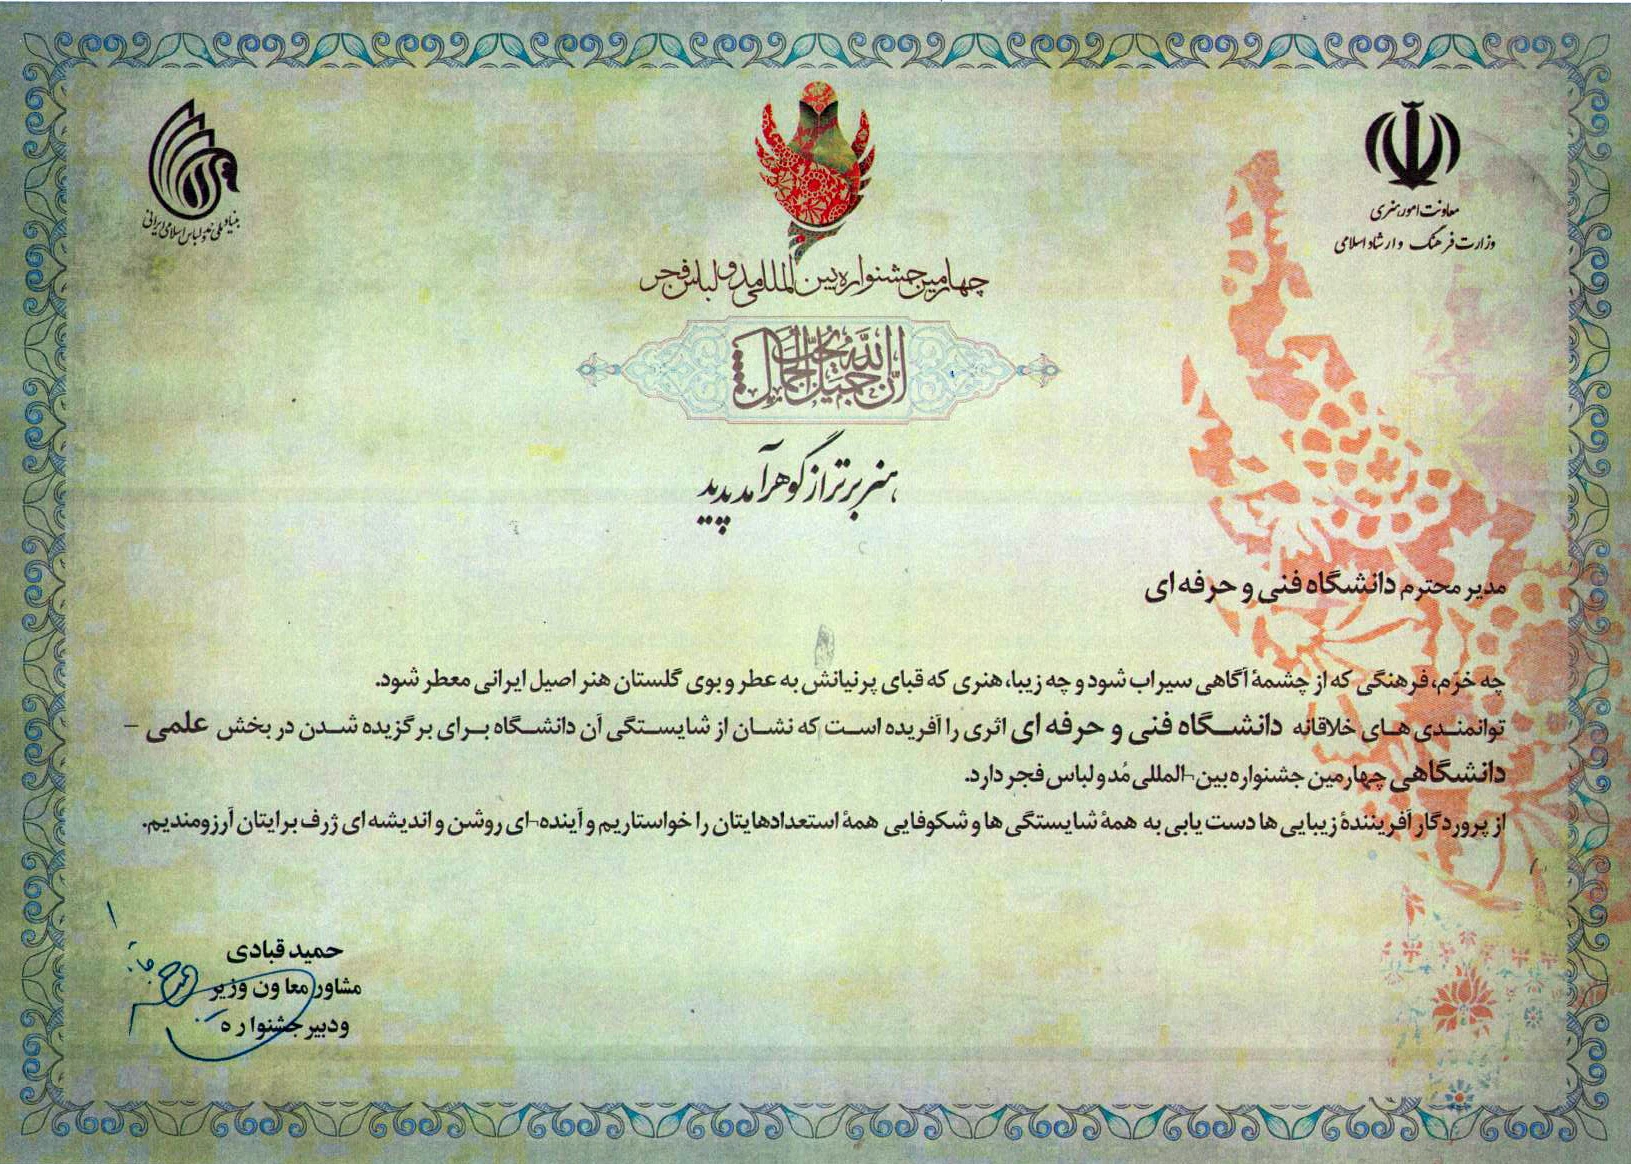 معاونت امور هنری
وزارت فرهنگ و ارشاد اسلامی
بنیاد ملی مد و لباس اسلامی ایرانی
چهارمین جشنواره بین المللی مد و لباس فجر
ان الله جمیل یحب الجمال
هنر برتر از گوهر آمد پدید
مدیر محترم دانشگاه فنی و حرفه ای
چه خرّم، فرهنگی که از چشمهٔ آگاهی سیراب شود و چه زیبا، هنری که قبای پرنیانش به عطر و بوی گلستان هنر اصیل ایرانی معطر شود.
توانمندی های خلاقانه دانشگاه فنی و حرفه ای اثری را آفریده است که نشان از شایستگی آن دانشگاه برای برگزیده شدن در بخش علمی –
دانشگاهی چهارمین جشنواره بین¬المللی مُد و لباس فجر دارد.
از پروردگار آفرینندهٔ زیبایی ها دست یابی به همهٔ شایستگی ها و شکوفایی همهٔ استعدادهایتان را خواستاریم و آینده¬ای روشن و اندیشه ای ژرف برایتان آرزومندیم.
حمید قبادی
مشاور معاون وزیر
ودبیر جشنواره